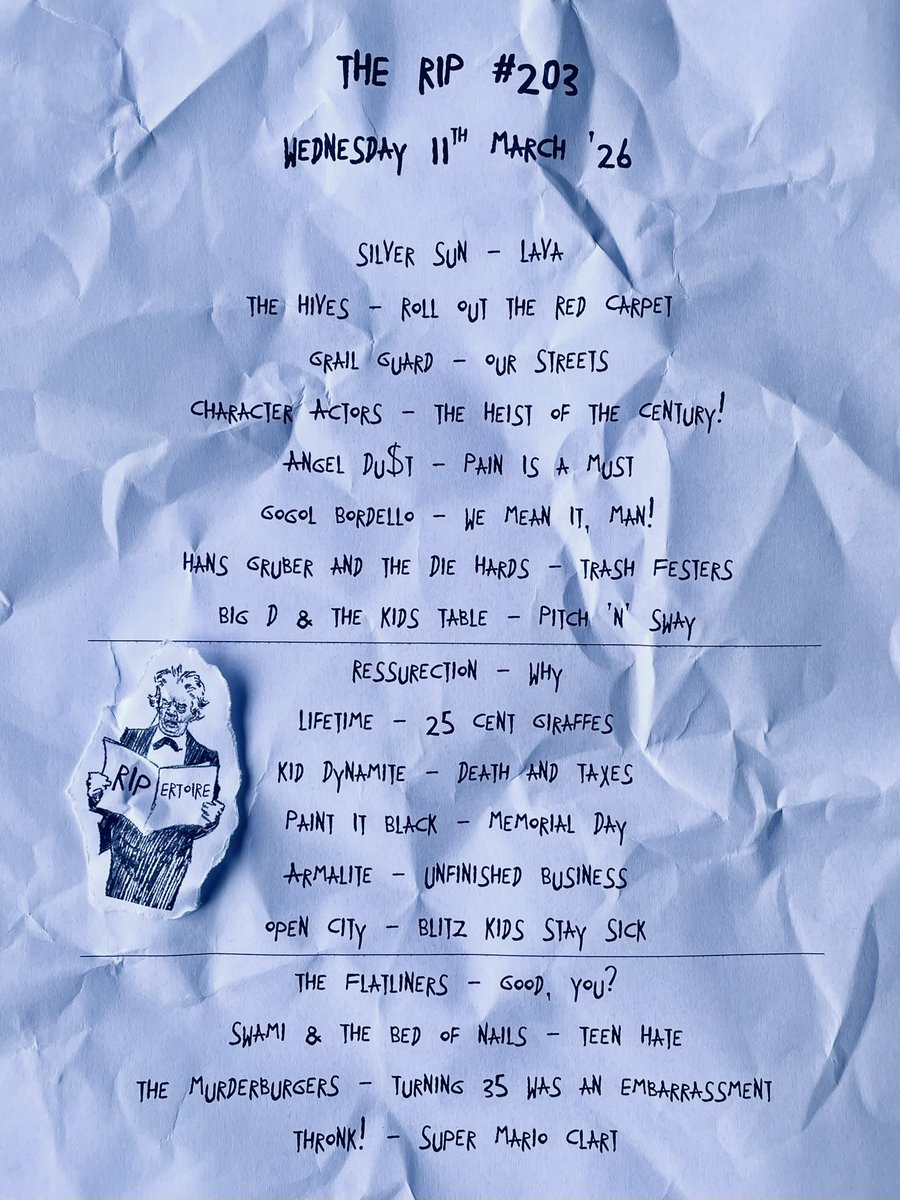 THE RIP #203
WEDNESDAY 11TH MARCH '26
SILVER SUN – LAVA
THE HIVES – ROLL OUT THE RED CARPET
GRAIL GUARD – OUR STREETS
CHARACTER ACTORS – THE HEIST OF THE CENTURY!
ANGEL DU$T – PAIN IS A MUST
GOGOL BORDELLO – WE MEAN IT, MAN!
HANS GRUBER AND THE DIE HARDS – TRASH FESTERS
BIG D & THE KIDS TABLE – PITCH 'N' SWAY
RESSURECTION – WHY
LIFETIME – 25 CENT GIRAFFES
KID DYNAMITE – DEATH AND TAXES
PAINT IT BLACK – MEMORIAL DAY
ARMALITE – UNFINISHED BUSINESS
OPEN CITY – BLITZ KIDS STAY SICK
RIPERTOIRE
THE FLATLINERS – GOOD, YOU?
SWAMI & THE BED OF NAILS – TEEN HATE
THE MURDERBURGERS – TURNING 35 WAS AN EMBARRASSMENT
THRONK! – SUPER MARIO CLART